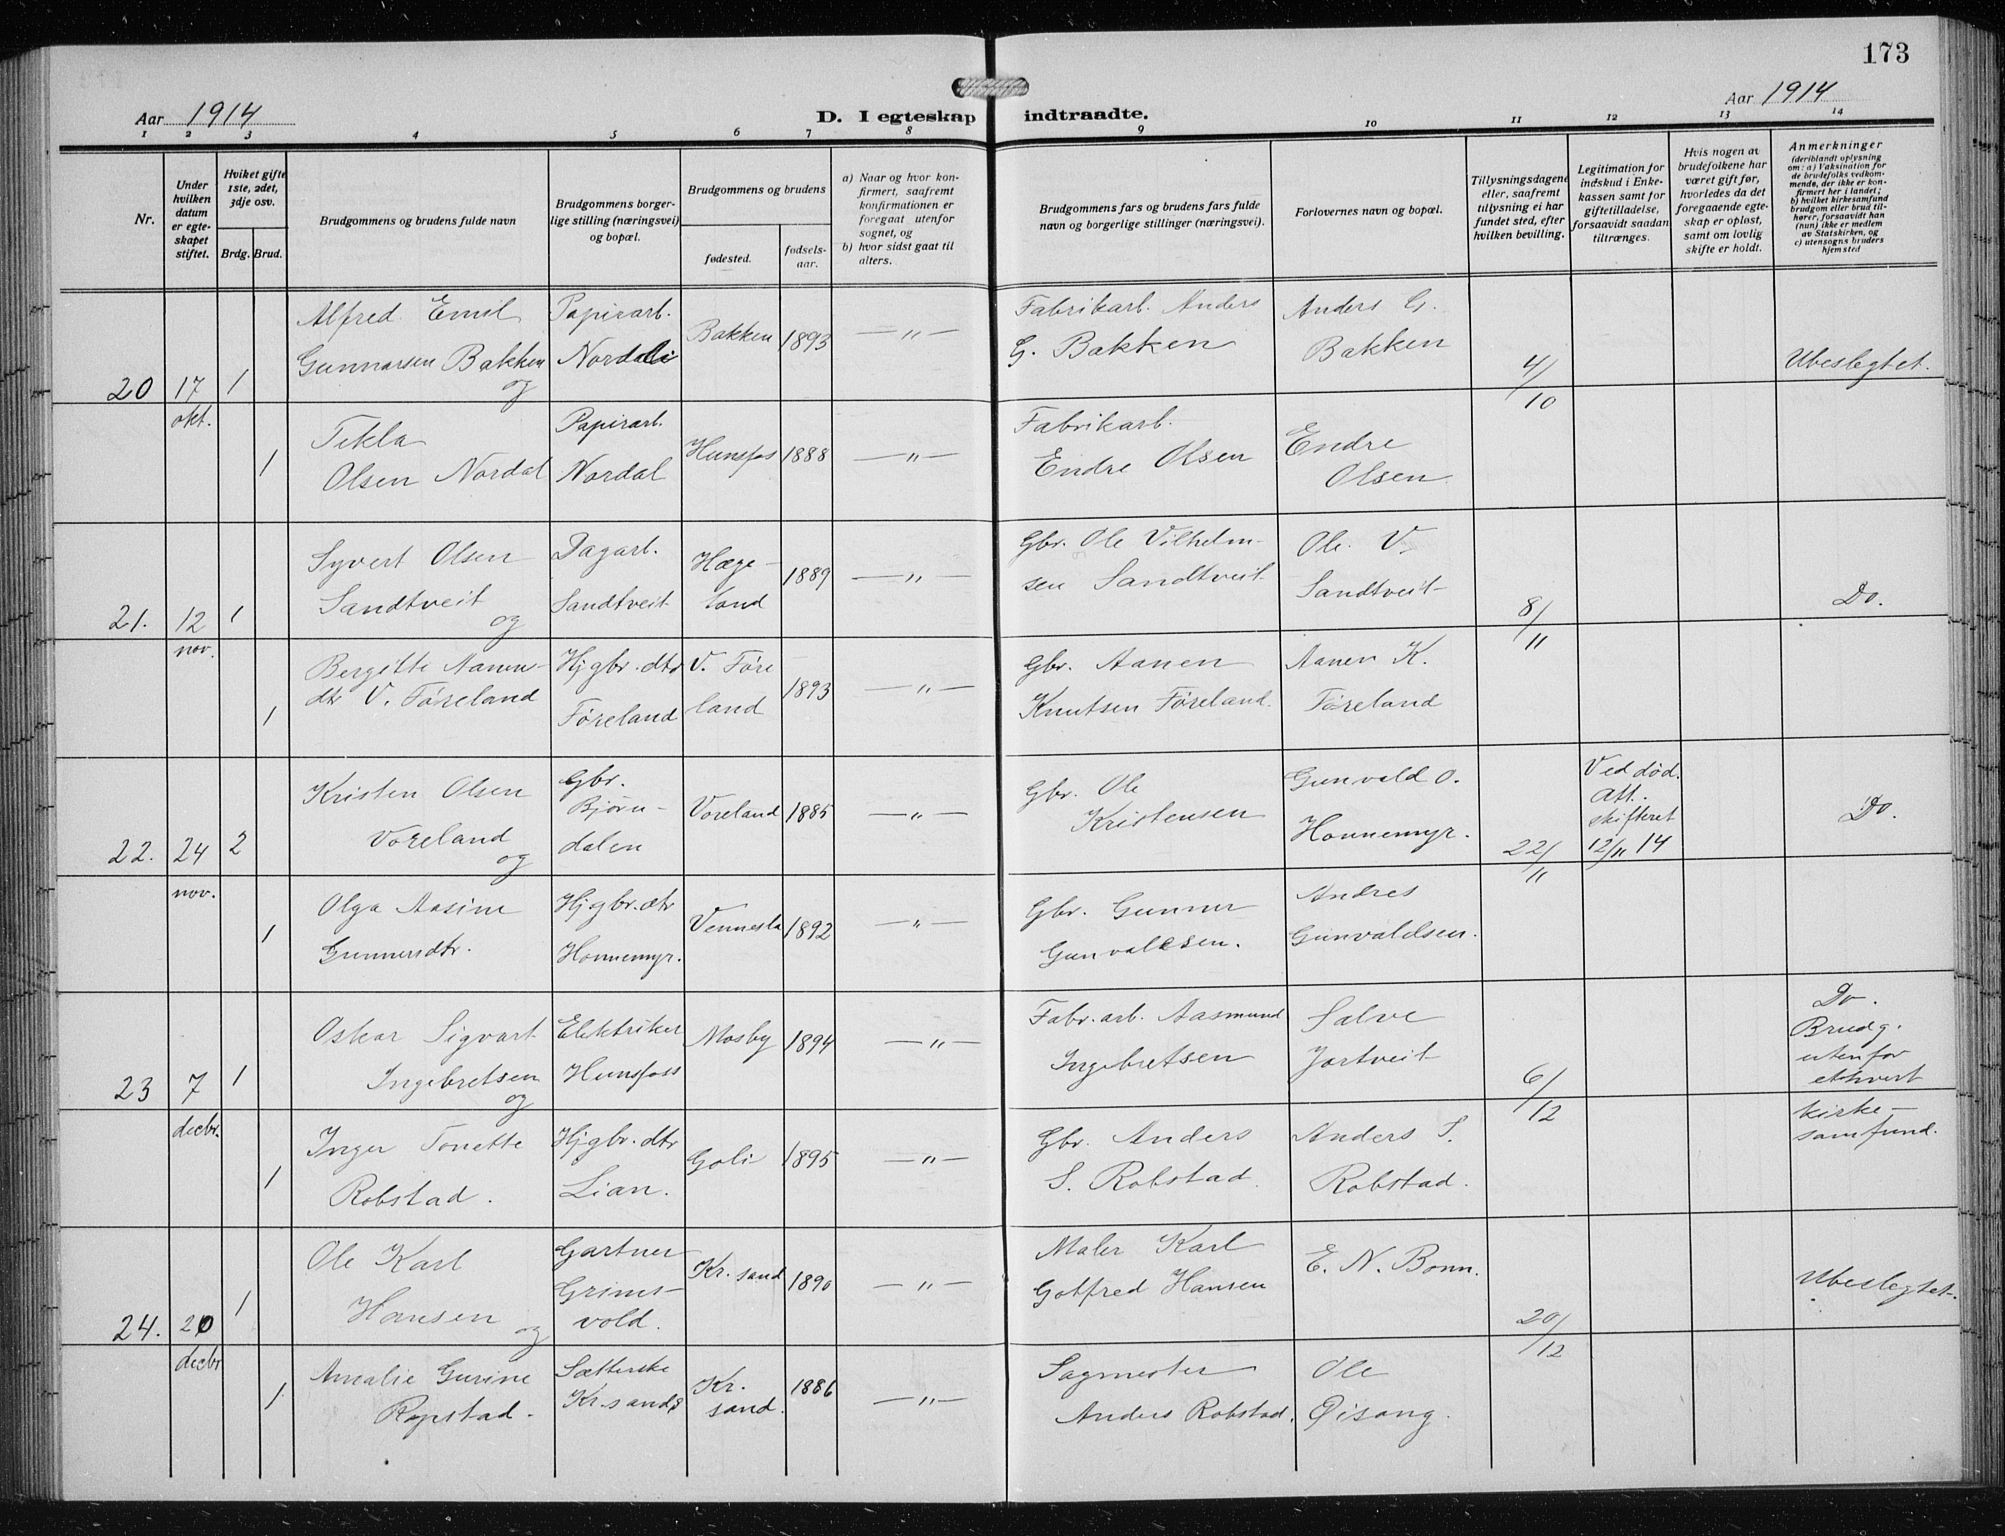 173
Aar 1914
D. I egteskap indtraadte.
Aar 1914
1 2 3 4 5 6 7 8 9 10 11 12 13 14
Nr.
Under hvilken datum er egteskapet stiftet.
Hvilket gifte 1ste, 2det, 3dje osv.
Brdg. Brud.
Brudgommens og brudens fulde navn
Brudgommens borgerlige stilling (næringsvei) og bopæl.
Brudgommens og brudens
fødested.
fødselsaar.
a) Naar og hvor konfirmert, saafremt konfirmationen er foregaat utenfor sognet, og
b) hvor sidst gaat til alters.
Brudgommens fars og brudens fars fulde navn og borgerlige stillinger (næringsvei).
Forlovernes navn og bopæl.
Tillysningsdagene eller, saafremt tillysning ei har fundet sted, efter hvilken bevilling.
Legitimation for indskud i Enkekassen samt for giftetilladelse, forsaavidt saadan tiltrænges.
Hvis nogen av brudefolkene har været gift før, hvorledes da det foregaaende egteskap er opløst, samt om lovlig skifte er holdt.
Anmerkninger
(deriblandt oplysning om: a) Vaksination for de brudefolks vedkommende, der ikke er konfirmert her i landet; b) hvilket kirkesamfund brudgom eller brud tilhører, forsaavidt han (hun) ikke er medlem av Statskirken, og c) utensogns bruders hjemsted
20 17 okt. 1
Alfred Emil
Gunnarsen Bakken
og
Papirarb.
Nordali
Bakken 1893 — " —
Fabrikarb. Anders
G. Bakken
Anders G.
Bakken
4/10
Ubeslegtet.
1
Tekla
Olsen Nordal
Papirarb.
Nordal
Hunsfos 1888 — " —
Fabrikarb.
Endre Olsen
Endre
Olsen
21. 12 nov. 1
Syvert Olsen
Sandtveit
og
Dagarb.
Sandtveit
Hægeland 1889 — " —
Gbr. Ole Vilhelmsen Sandtveit
Ole V.
Sandtveit
8/11
Do.
1
Bergitte Aanensdtr V. Føreland
Hj gbr. dtr
Føreland
V. Føreland 1893 — " —
Gbr. Aanen
Knutsen Føreland.
Aanen K.
Føreland
22. 24 nov. 2
Kristen Olsen
Voreland
og
Gbr.
Bjørndalen
Voreland 1885 — " —
Gbr. Ole
Kristensen
Gunvald O.
Honnemyr.
22/11
Ved død.
Att.
skifteret
12/11 14
Do.
1
Olga Aasine
Gunnersdtr.
Hj gbr. dtr
Honnemyr.
Vennesla 1892 — " —
Gbr. Gunner
Gunvaldsen.
Andres
Gunvaldsen.
23 7 decbr. 1
Oskar Sigvart
Ingebretsen
og
Elektriker
Hunsfoss
Mosby 1894 — " —
Fabr. arb. Aasmund
Ingebretsen
Salve
Jortveit
6/12
Do.
Brudg.
utenfor
ethvert
kirke-
samfund.
1
Inger Tonette
Robstad.
Hj gbr. dtr
Lian.
Goli 1895 — " —
Gbr. Anders
S. Robstad
Anders S.
Robstad.
24. 20 decbr 1
Ole Karl
Hansen
og
Gartner
Grimsvold.
Kr. sand 1890 — " —
Maler Karl
Gotfred Hansen
E. N. Bonn.
20/12
Ubeslegtet.
1
Amalie Gurine
Ropstad.
Sætterske
Kr.sand
Kr.
sand. 1886 — " —
Sagmester
Anders Robstad.
Ole
Øisang.